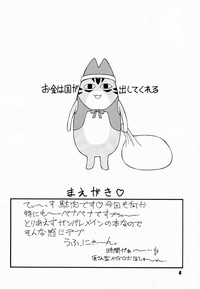 お金は国が出してくれる
まえがき♡
てぃーっす豚肉です♡今回も何か
特にも〜ペナペナですプゥ〜
とりあえずガンパレメインの本なので
そんな感じデープ
うふ、にゃーん。
時間がぁ〜
4